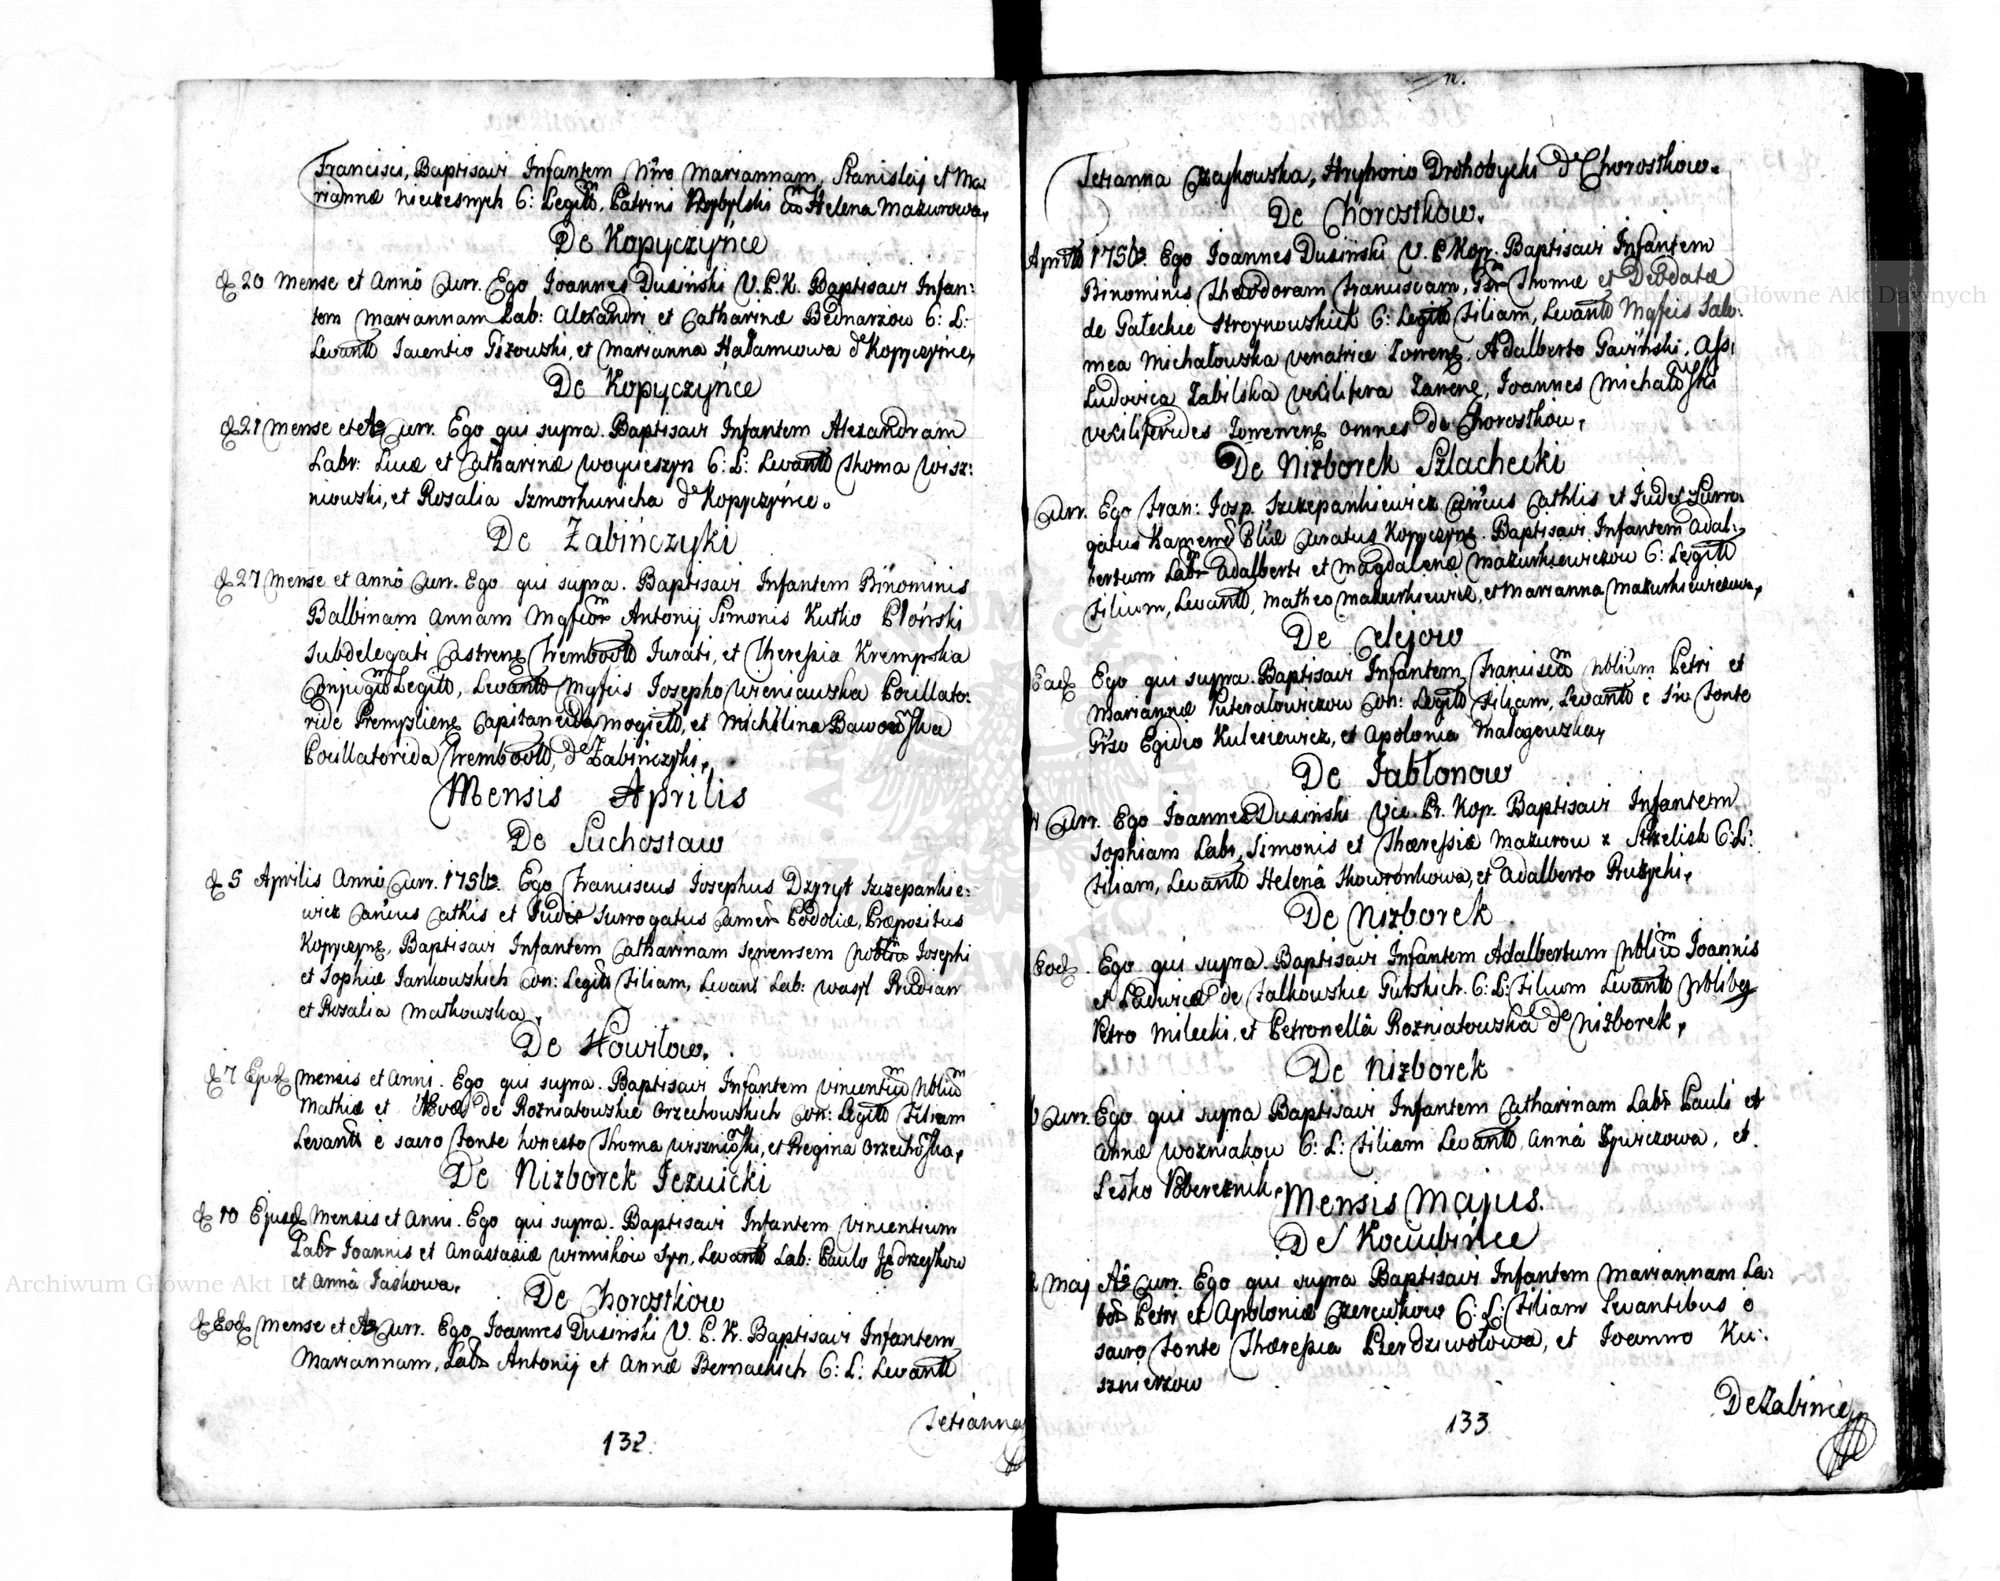 Francisci, Baptisavi Infantem Nme Mariannam, Stanislaj et Ma:
riannæ Niewczesnych C: Legittm, Patrini Przybylski cum Helena Mazurowa,
De Kopyczyńce
d. 20 Mense et Annô Curr. Ego Joannes Dusiński V.P.K. Baptisavi Infan:
tem Mariannam Lab: Alexandri et Catharinæ Bednarzow C: L:
Levantb Jacentio Gizowski, et Marianna Hałamowa de Kopyczyńce,
De Kopyczyńce
d. 21 Mense et Ao Curr. Ego qui supra. Baptisavi Infantem Alexandram
Labr: Lucæ et Catharinæ Woycieszyn C: L: Levantb Thoma Wisz:
niowski, et Rosalia Szmorhunicha de Kopyczyńce.
De Żabińczyki
d. 27 Mense et Annô Curr. Ego qui supra. Baptisavi Infantem Binominis
Balbinam Annam Mgficor Antonij Simonis Kutko Płoński
Subdelegati Castren Trembovl Jurati, et Theressia Krempska
Conjugu Legittm, Levantb Mgfcis Josepho Wieniawska Pocillato:
ride Premyslien Capitaneida Mogiel, et Michélina Baworowska
Pocillatorida Trembovl, de Żabińczyki,
Mensis Aprilis
De Suchostaw
d. 5 Aprilis Annô Curr. 175 Ego Franciscus Josephus Dzyryt Szczepankie:
wicz Cancus Cathis et Judex Surrogatus Camen Podoliæ, Præpositus
Kopyczyn, Baptisavi Infantem Catharinam Josephi
et Sophiæ Jankowskich Con: Legitt Filiam, Levant Lab: Wasyl Prudian
et Rosalia Małkowska,
De Howiłow.
d. 7 Ejusd Mensis et Anni. Ego qui supra. Baptisavi Infantem Vincentium Nblium
Mathiæ et Evæ de Rozniatowskie Orzechowskich Con: Legitt Filium
Levantb e sacro Fonte honesto Thoma Wiszniowski, et Regina Orzechowska,
De Nizborek Jezuicki
d. 10 Ejusd Mensis et Anni. Ego qui supra. Baptisavi Infantem Vincentium
Labr Joannis et Anastasiæ Winnikow Syn, Levantb Lab: Paulo Jędrzeykow
et Annâ Jaskowa,
De Chorostkow
d. Eod Mense et Ao Curr. Ego Joannes Dusinski V. P. K. Baptisavi Infantem
Mariannam, Lab Antonij et Annæ Bernackich C: L: Levantb
Tetianna
132.
Tetianna Czaykowska, Hryhorio Drohobycki de Chorostkow.
De Chorostkow.
Aprilis 175 Ego Joannes Dusiński V. P. Kop. Baptisavi Infantem
Binominis Theodoram Franciscam, Thomæ et Deodatæ
de Gałeckie Stroynowskich C: Legitt Filiam, Levantb Mgfcis Salo:
mea Michałowska Venatrice Adalberto Gawiński, Ass:
Ludovica Zabilska Vexilifera Joannes Michałowski
Vexiliferides omnes de Chorostkow,
De Nizborek Szlachecki
Curr. Ego Fran: Josp. Szczepankiewicz Cancus Cathlis et Judex Surro:
gatus Kamene Plæ Curatus Kopyczyn. Baptisavi Infantem Adal:
bertum Labr Adalberti et Magdalenæ Mazurkiewiczow C: Legitt
Filium, Levantb, Matheo Mazurkiewicz, et Marianna Mazurkiewiczowa,
De Celejow
Ead Ego qui supra. Baptisavi Infantem Nblium Petri et
Mariannæ Puterałowiczow Con: Legitt Filiam, Levantb e Fonte
Egidio Kulesiewicz, et Apolonia Małagowska,
De Jabłonow
Curr. Ego Joannes Dusinski Vic. Pr. Kop. Baptisavi Infantem
Sophiam Labr, Simonis et Thæressiæ Mazurow z Strzelisk C: L:
Filiam, Levantb Helenâ Skowronkowa, et Adalberto Pruzycki,
De Nizborek
Eod. Ego qui supra. Baptisavi Infantem Adalbertum Nblium Joannis
et Ludwicæ de Falkowskie Gurskich. C: L: Filium Levantb Nblibq
Petro Milecki, et Petronellâ Rozniatowska de Niżborek,
De Nizborek
Curr. Ego qui supra Baptisavi Infantem Catharinam Labr Pauli et
Annæ Wozniakow C: L: Filiam Levantb, Annâ Spirczowa, et
Lesko Pobereznik,
Mensis Majus.
De Kociubińce
Maj Ao Curr. Ego qui supra Baptisavi Infantem Mariannam La:
bor Petri et Apoloniæ Czerewkow C: L: Filiam Levantibus e
sacro Fonte Thæressia Pierdziwołowa, et Joanno Ku:
sznierzow
133
De Zabince
Archiwum Główne Akt Dawnych
Archiwum Główne Akt D